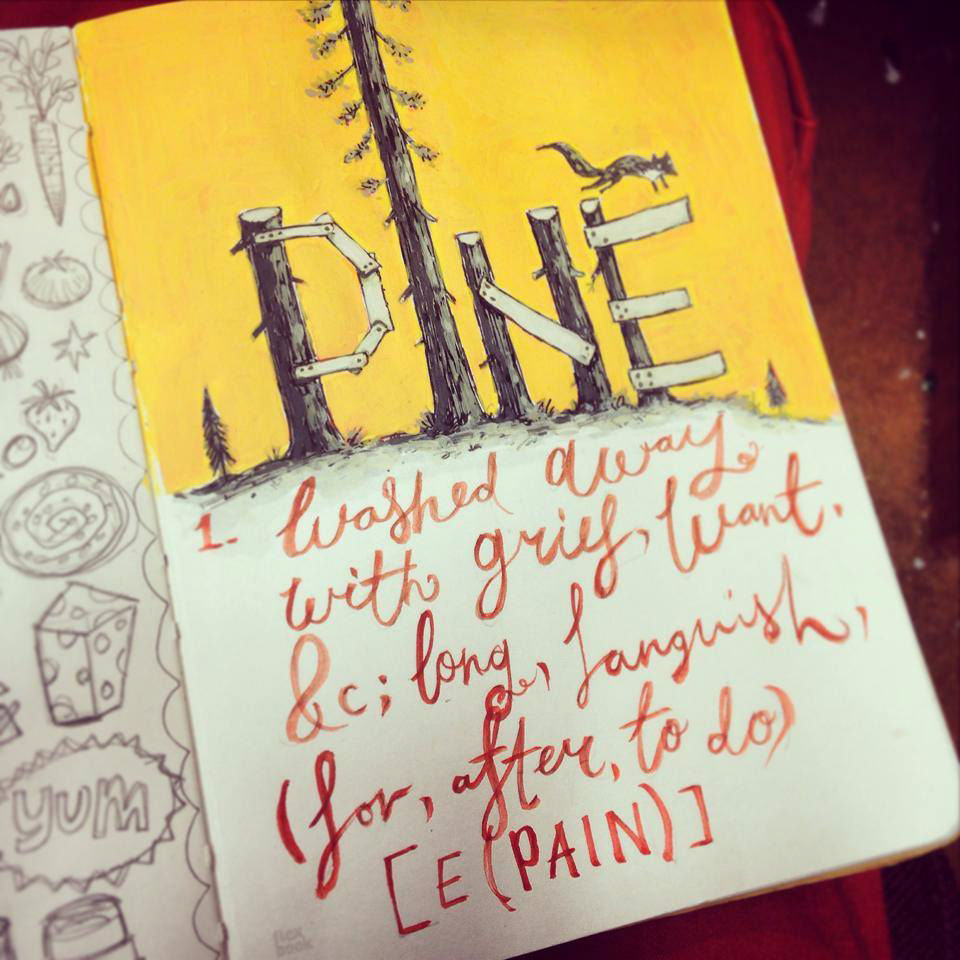 PINE
1. washed away
with grief, want.
&c; long, languish,
(for, after, to do)
[E(PAIN)]
YUM
flex
book